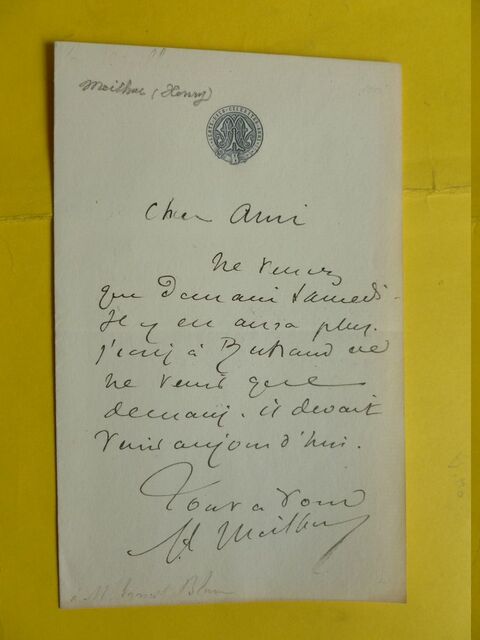 Meilhac (Henry)
Cher Ami
Ne venez
que demain samedi.
Il y en aura plus.
J'écris à Bertrand de
ne venir que
demain. il devait
venir aujourd'hui.
Tout à vous
H. Meilhac
à M. Ernest Blum